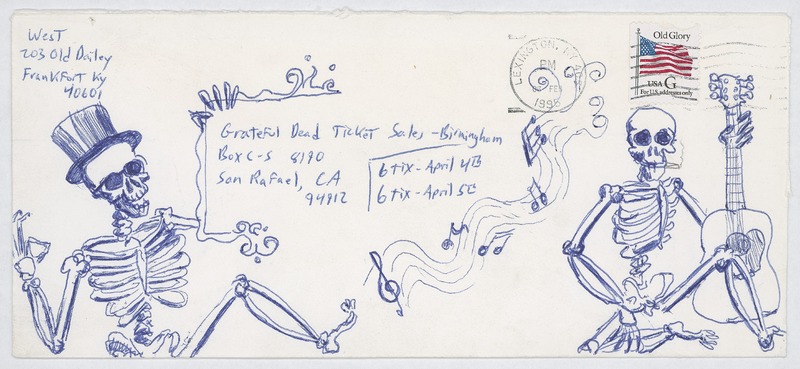 West
203 Old Dailey
Frankfort Ky
40601
Grateful Dead Ticket Sales - Birmingham
Box C-S 8190
San Rafael, CA
94912
6 tix - April 4th
6 tix - April 5th
LEXINGTON, KY
PM
FEB
1995
Old Glory
USA G
For U.S. addresses only